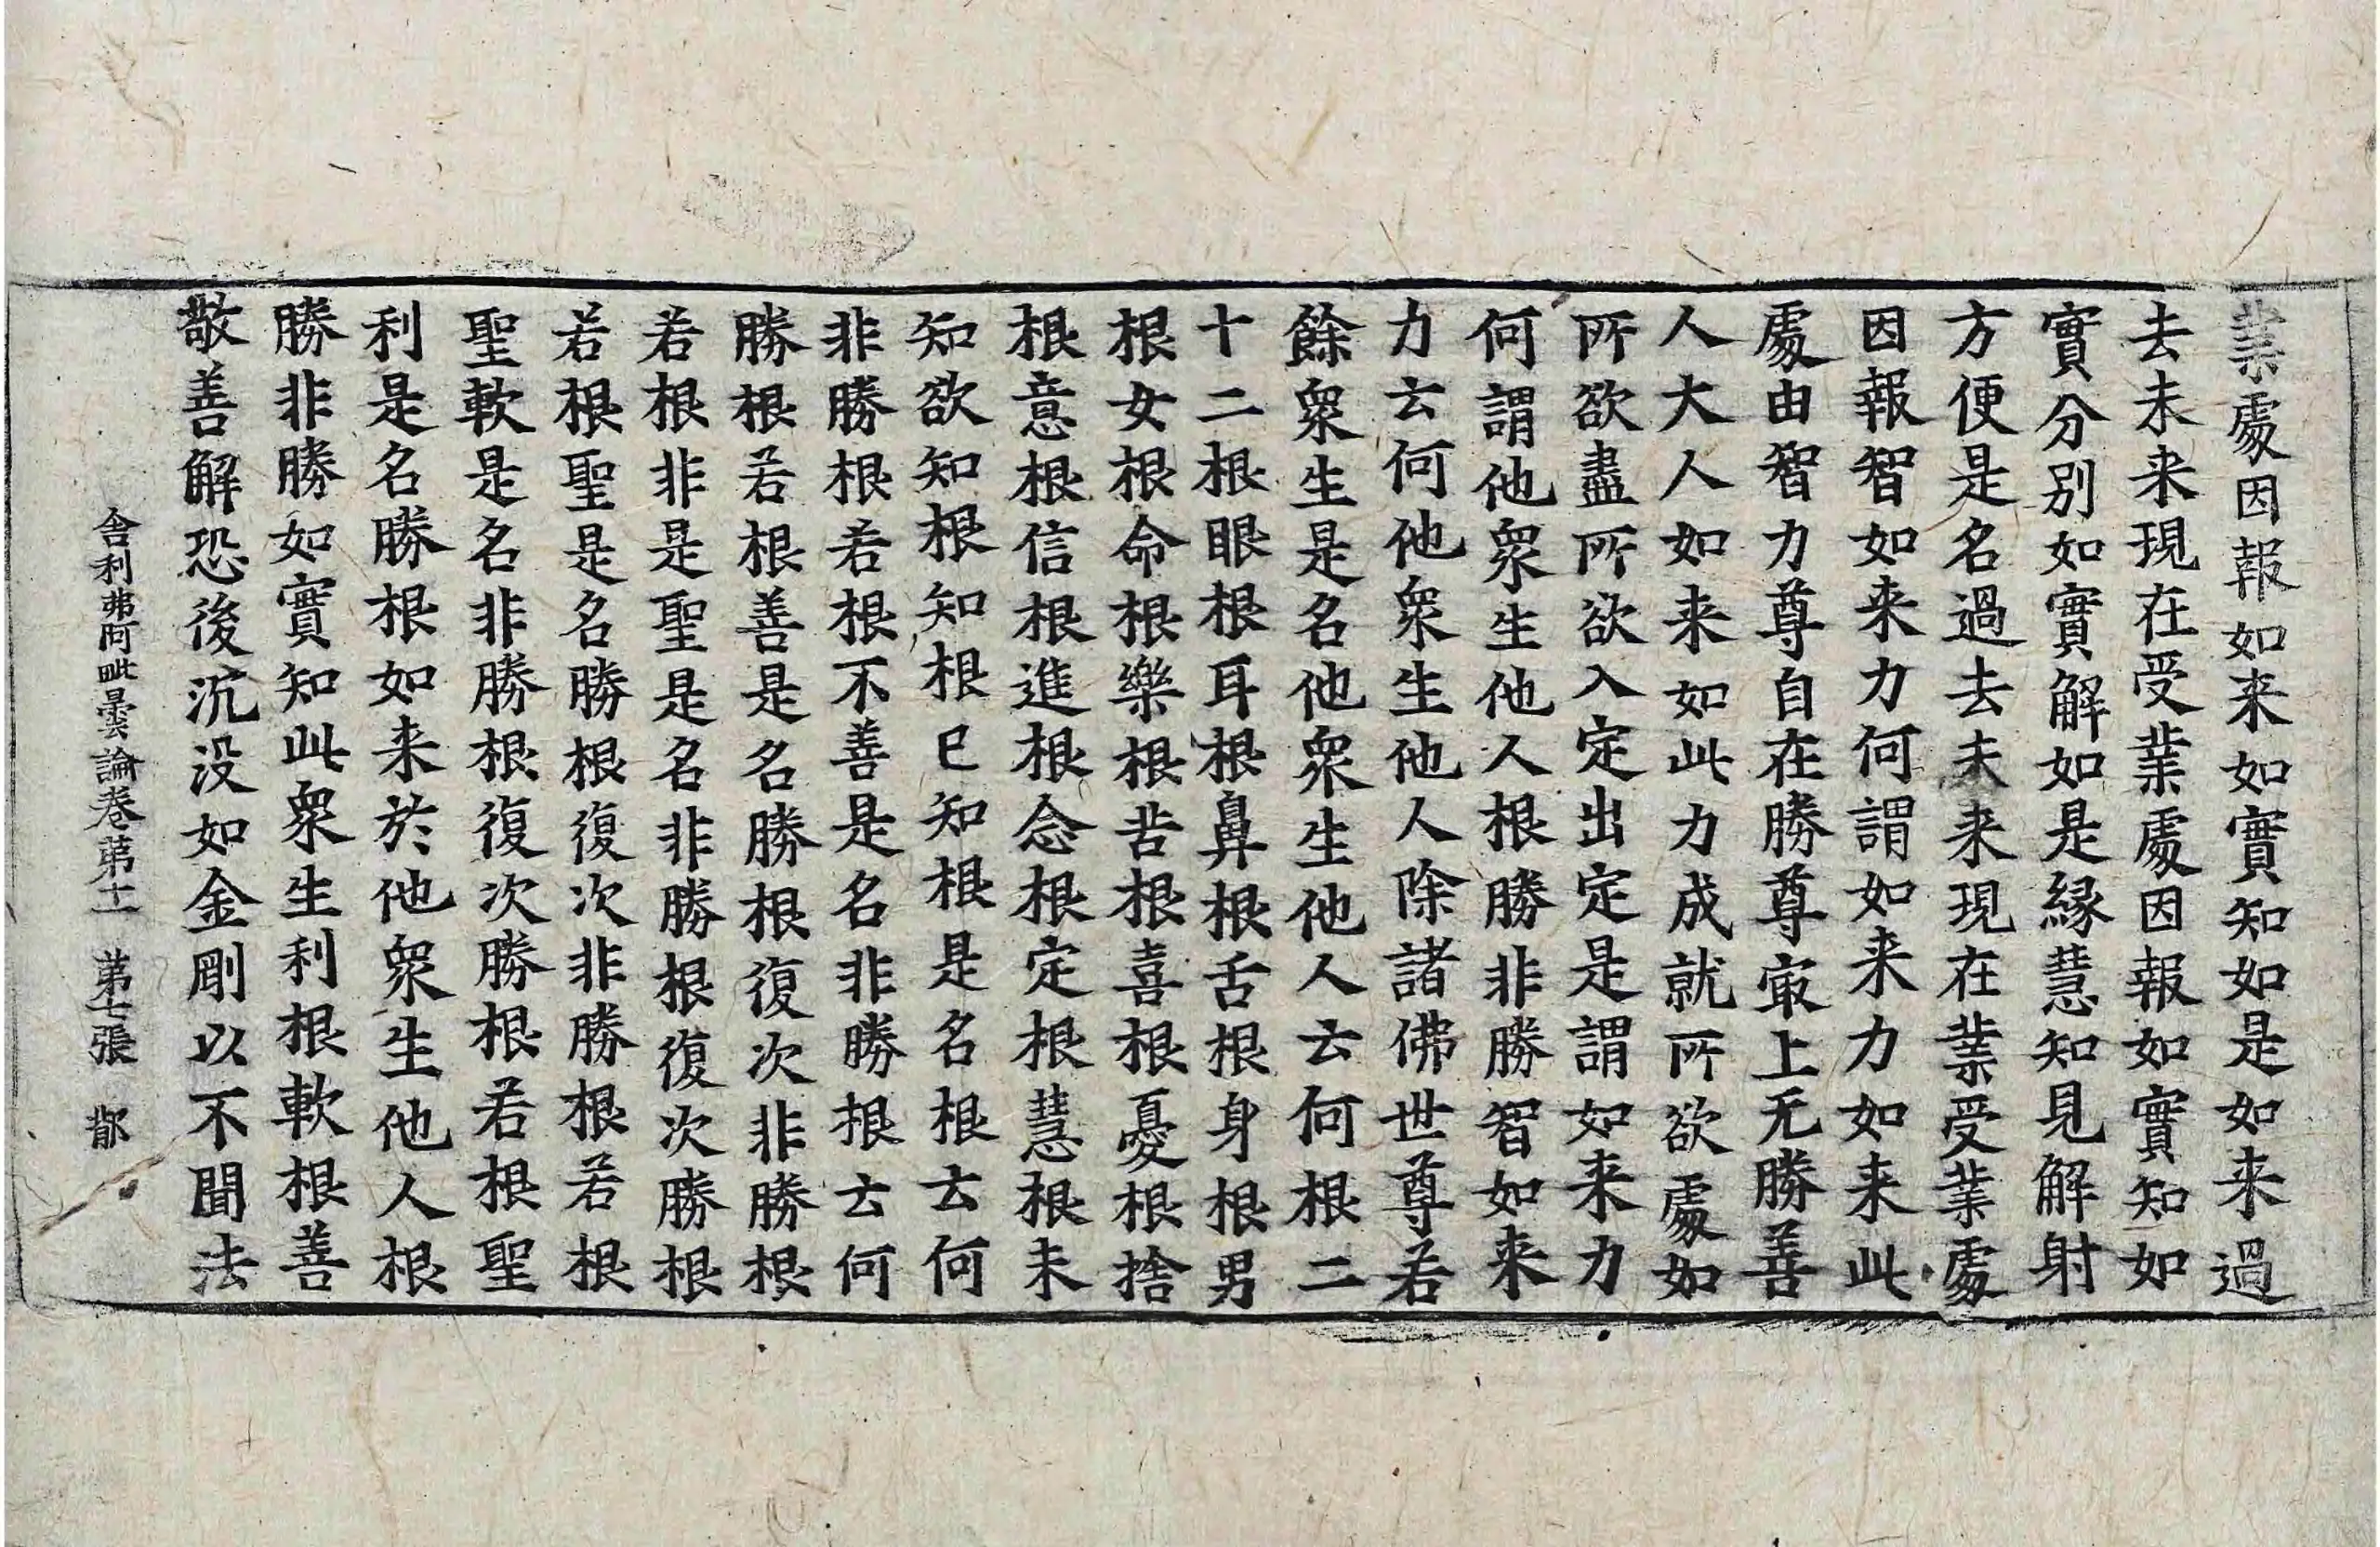 業處因報如来如實知如是如来過
去未来現在受業處因報如實知如
實分別如實解如是縁慧知見解射
方便是名過去未来現在業受業處
因報智如来力何謂如来力如来此
處由智力尊自在勝尊㝡上无勝善
人大人如来如此力成就所欲處如
所欲盡所欲入定出定是謂如来力
何謂他衆生他人根勝非勝智如来
力云何他衆生他人除諸佛世尊若
餘衆生是名他衆生他人云何根二
十二根眼根耳根鼻根舌根身根男
根女根命根樂根苦根喜根憂根捨
根意根信根進根念根定根慧根未
知欲知根知根已知根是名根云何
非勝根若根不善是名非勝根云何
勝根若根善是名勝根復次非勝根
若根非是聖是名非勝根復次勝根
若根聖是名勝根復次非勝根若根
聖軟是名非勝根復次勝根若根聖
利是名勝根如来於他衆生他人根
勝非勝如實知此衆生利根軟根善
敬善解恐後沉没如金剛以不聞法
舎利弗阿毗曇論卷苐十一 苐七張 都